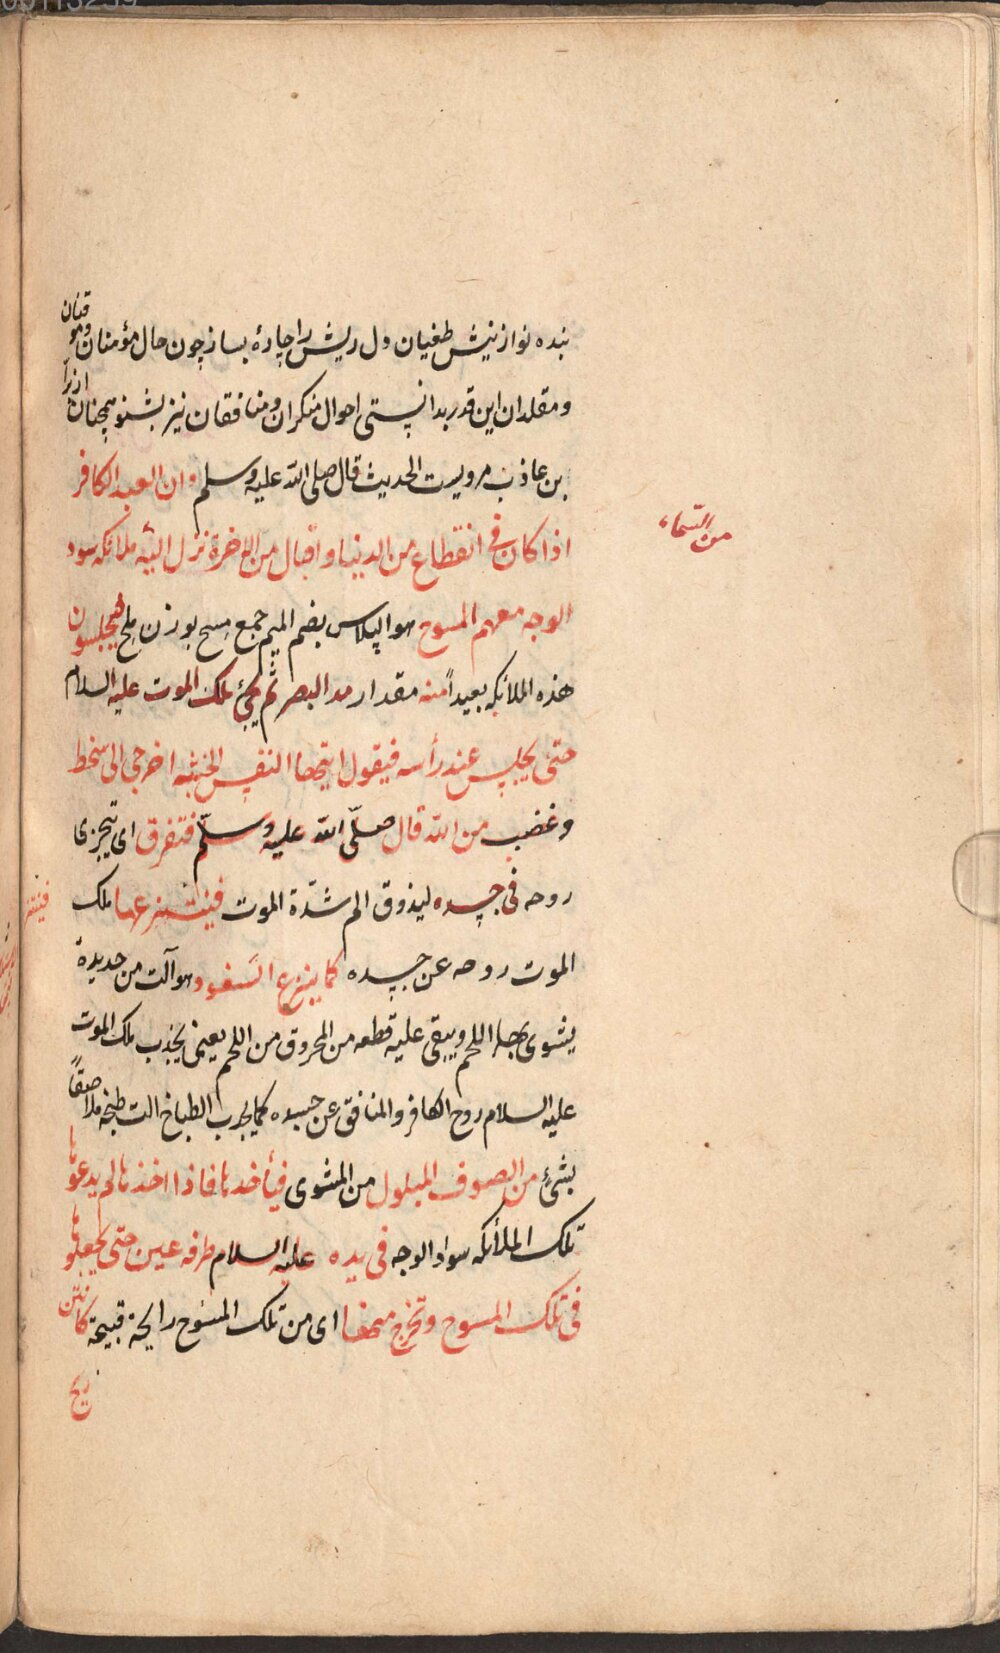 بنده نواز نیش طغیان دل ریش را چارهٔ بساز چون حال مؤمنان وموقنان
ومقلدان این قدر بدانستی احوال منکران ومنافقان نیز بشنو همچنان از براء
بن عاذب مرویست الحدیث قال صلی الله علیه وسلم وان العبد الکافر
اذا کان فی انقطاع من الدنیا واقبال من الاخرة نزل الیه ملائکه سود
من السماء
الوجه معهم المسوح هو الپلاس بضم المیم جمع مسح بوزن ملح فیجلسون
هذه الملائکه بعیداً منه مقدار مد البصر ثم یجئ ملک الموت علیه السلام
حتی یجلس عند رأسه فیقول ایتها النفس الخبیثه اخرجی الی سخط
وغضب من الله قال صلّی الله علیه وسلّم فتفرق ای تتجزی
روحه فی جسده لیذوق الم شدّة الموت فینتزعها ملک
الموت روحه عن جسده کما ینزع السفود وهو آلت من حدیدة
یشوی بها اللحم ویبقی علیه قطعه من المحروق من اللحم یعنی یجذب ملک الموت
علیه السلام روح الکافر والمنافق عن جسده کما یجذب الطباخ الت طبخه ملاصقاً
بشئ من الصوف المبلول من المشوی فیأخذها فاذا اخذها لم یدعوها
تلک الملائکه سواد الوجه فی یده علیه السلام طرفه عین حتی یجعلوها
فی تلک المسوح وتخرج منها ای من تلک المسوح رایحة قبیحة کانتن
ریح